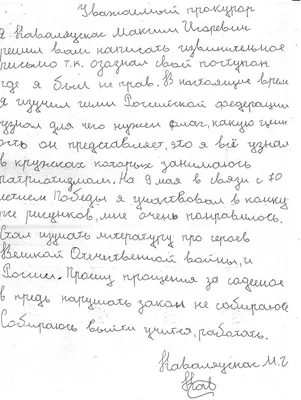 Уважаемый прокурор
Я Наваляускас Максим Игоревич
решил вам написать извинительное
письмо т.к. осознал свой поступок
где я был не прав. В настоящие время
я изучил гимн Российской федерации
узнал для чего нужен флаг, какую ценн
ость он представляет, это я всё узнал
в кружках которых занимаюсь
патриотизмом. На 9 мая в связи с 70
летием Победы я участвовал в конку
рсе рисунков, мне очень понравилось.
Стал изучать литературу про героев
Великой Отечественной войны, и
России. Прошу прощения за содеяное
в предь нарушать закон не собираюсь
Собираюсь выйти учится, работать.
Наваляускас М.И